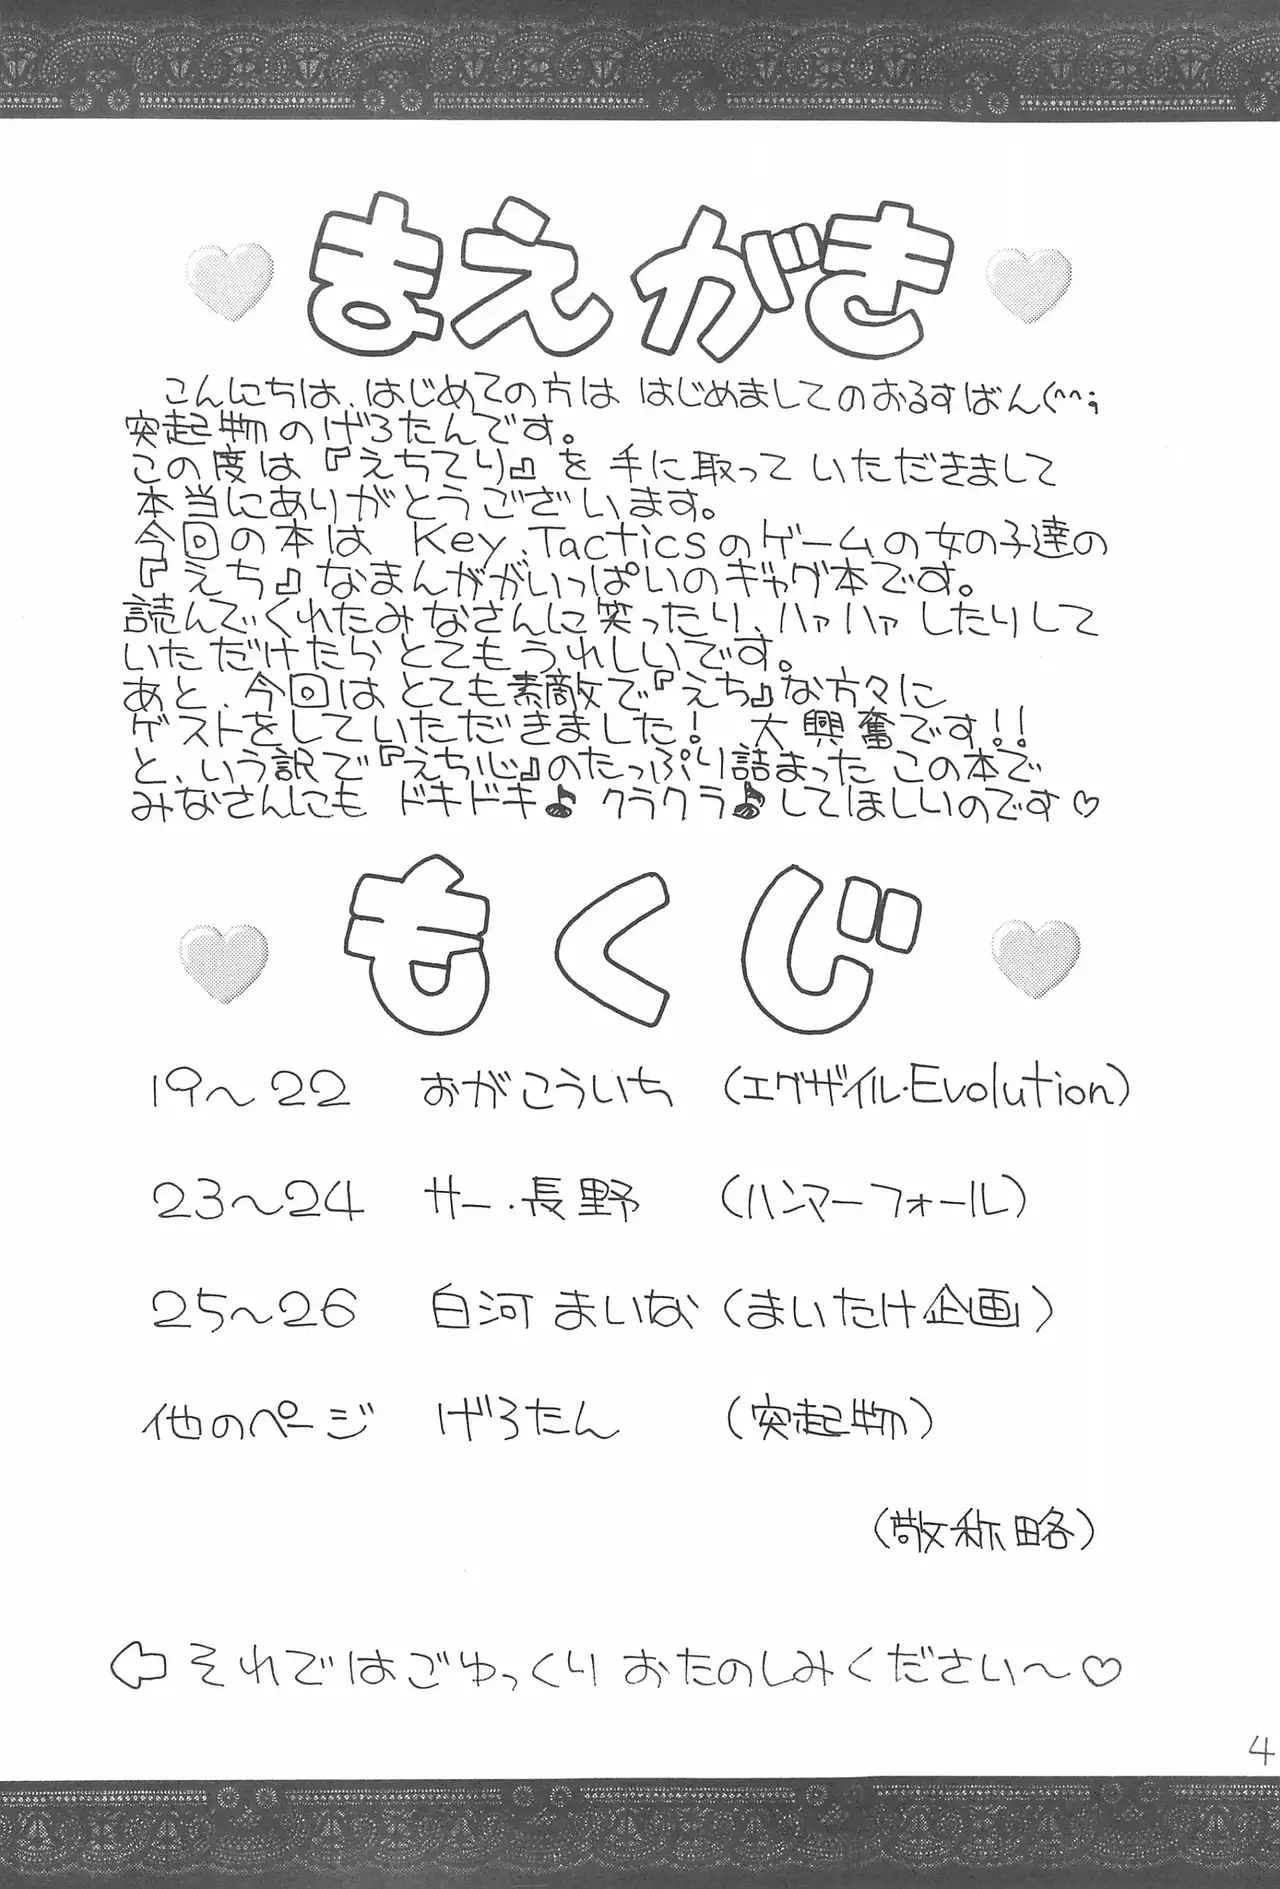 まえがき
こんにちは、はじめての方は はじめましてのおるすばん(^^;
突起物のげろたんです。
この度は『えちてり』を手に取って いただきまして
本当にありがとうございます。
今回の本は Key、Tacticsのゲームの女の子達の
『えち』なまんががいっぱいのギャグ本です。
読んでくれたみなさんに笑ったり、ハァハァしたりして
いただけたら とてもうれしいです。
あと、今回は とても素敵で『えち』な方々に
ゲストをしていただきました! 大興奮です!!
と、いう訳で『えち心』のたっぷり詰まった この本で
みなさんにも ドキドキ♪ クラクラ♪してほしいのです♡
もくじ
19〜22 おがこういち (エグザイル・Evolution)
23〜24 サー・長野 (ハンマーフォール)
25〜26 白河 まいな (まいたけ企画)
他のページ げろたん (突起物)
(敬称略)
⇦ それではごゆっくり おたのしみください〜♡
4